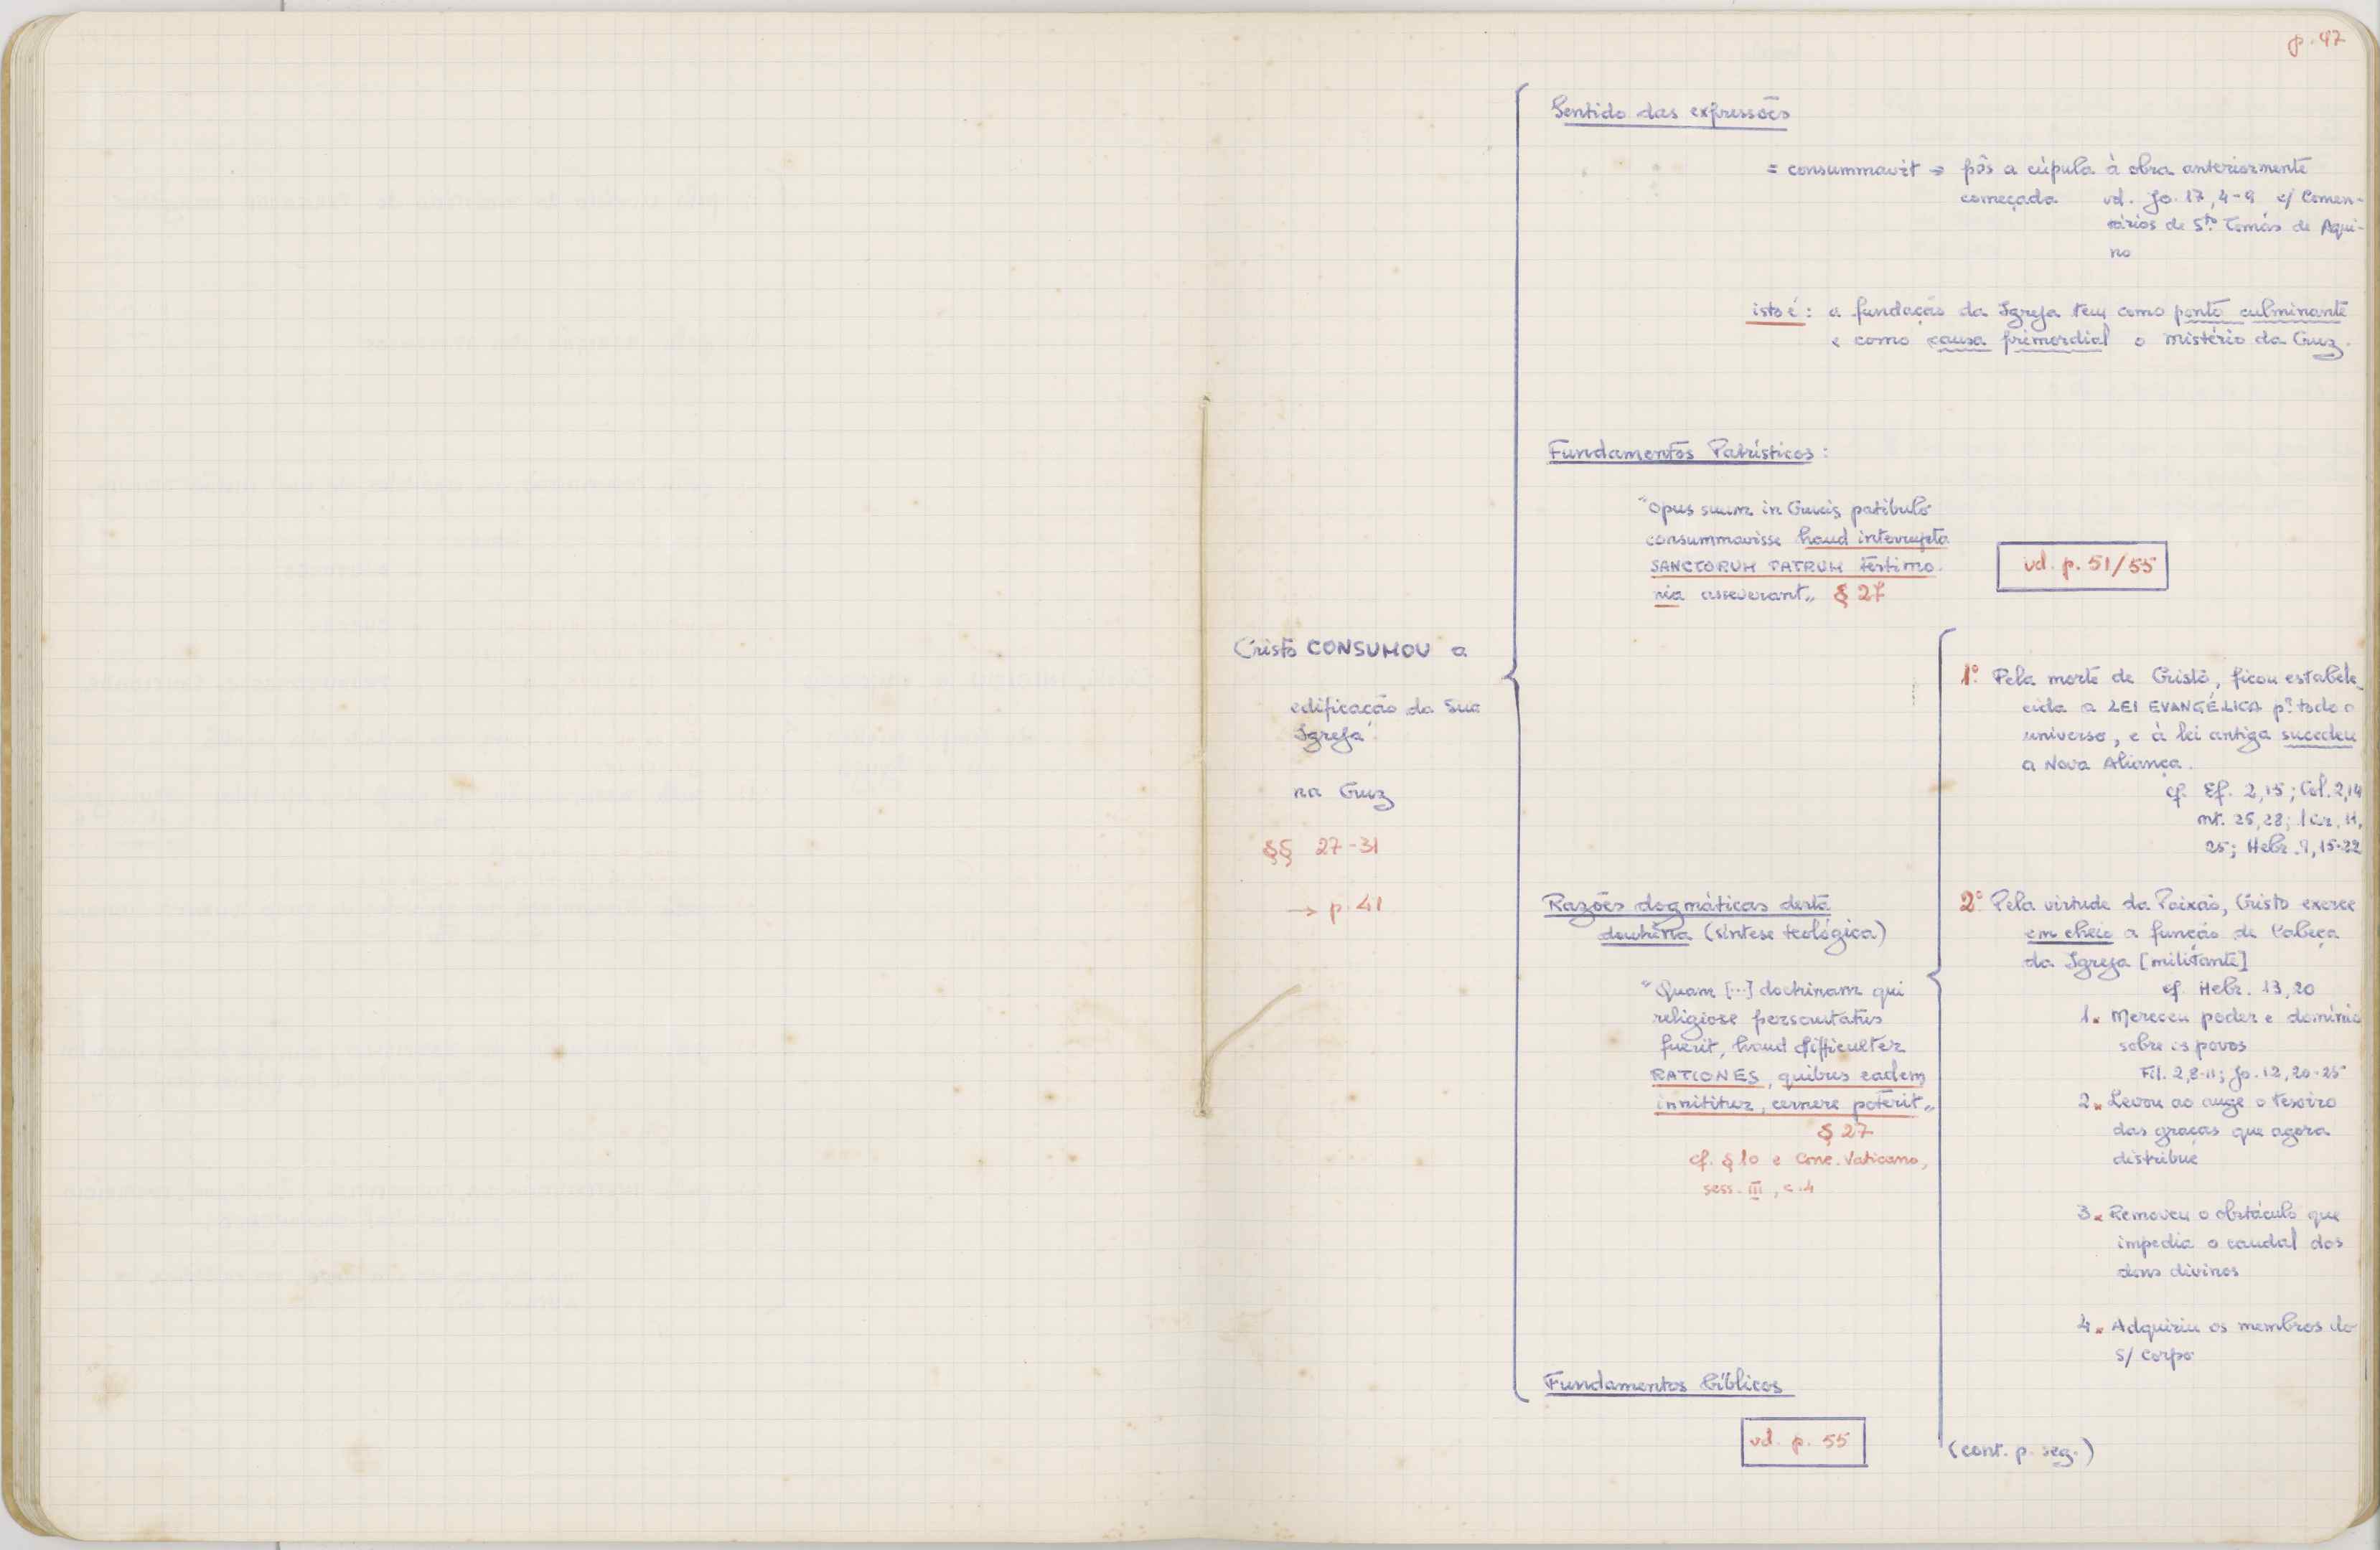 p. 47
Cristo CONSUMOU a
edificação da Sua
Igreja
na Cruz
§§ 27-31
→ p. 41
Sentido das expressões
= consummavit → pôs a cúpula à obra anteriormente
começada vd. Jo. 17, 4-9 c/ Comen-
tários de S.to Tomás de Aqui-
no
isto é: a fundação da Igreja tem como ponto culminante
e como causa primordial o mistério da Cruz.
Fundamentos Patrísticos:
"Opus suum in Crucis patibulo
consummavisse haud interrupta
SANCTORUM PATRUM testimo-
nia asseverant" § 27
vd. p. 51/55
Razões dogmáticas desta
doutrina (síntese teológica)
"Quam [...] doctrinam qui
religiose perscrutatus
fuerit, haud difficulter
RATIONES, quibus eadem
innititur, cernere poterit"
§ 27
cf. § 10 e Conc. Vaticano,
sess. III, c. 4
1º Pela morte de Cristo, ficou estabele-
cida a LEI EVANGÉLICA pª todo o
universo, e à lei antiga sucedeu
a Nova Aliança.
cf. Ef. 2,15; Col. 2,14
Mt. 26,28; 1 Cor. 11,
25; Hebr. 9, 15-22
2º Pela virtude da Paixão, Cristo exerce
em cheio a função de Cabeça
da Igreja [militante]
cf. Hebr. 13, 20
1. Mereceu poder e domínio
sobre os povos
Fil. 2,8-11; Jo. 12, 20-25
2. Levou ao auge o tesoiro
das graças que agora
distribue
3. Removeu o obstáculo que
impedia o caudal dos
dons divinos
4. Adquiriu os membros do
s/ corpo
(cont. p. seg.)
Fundamentos bíblicos
vd. p. 55